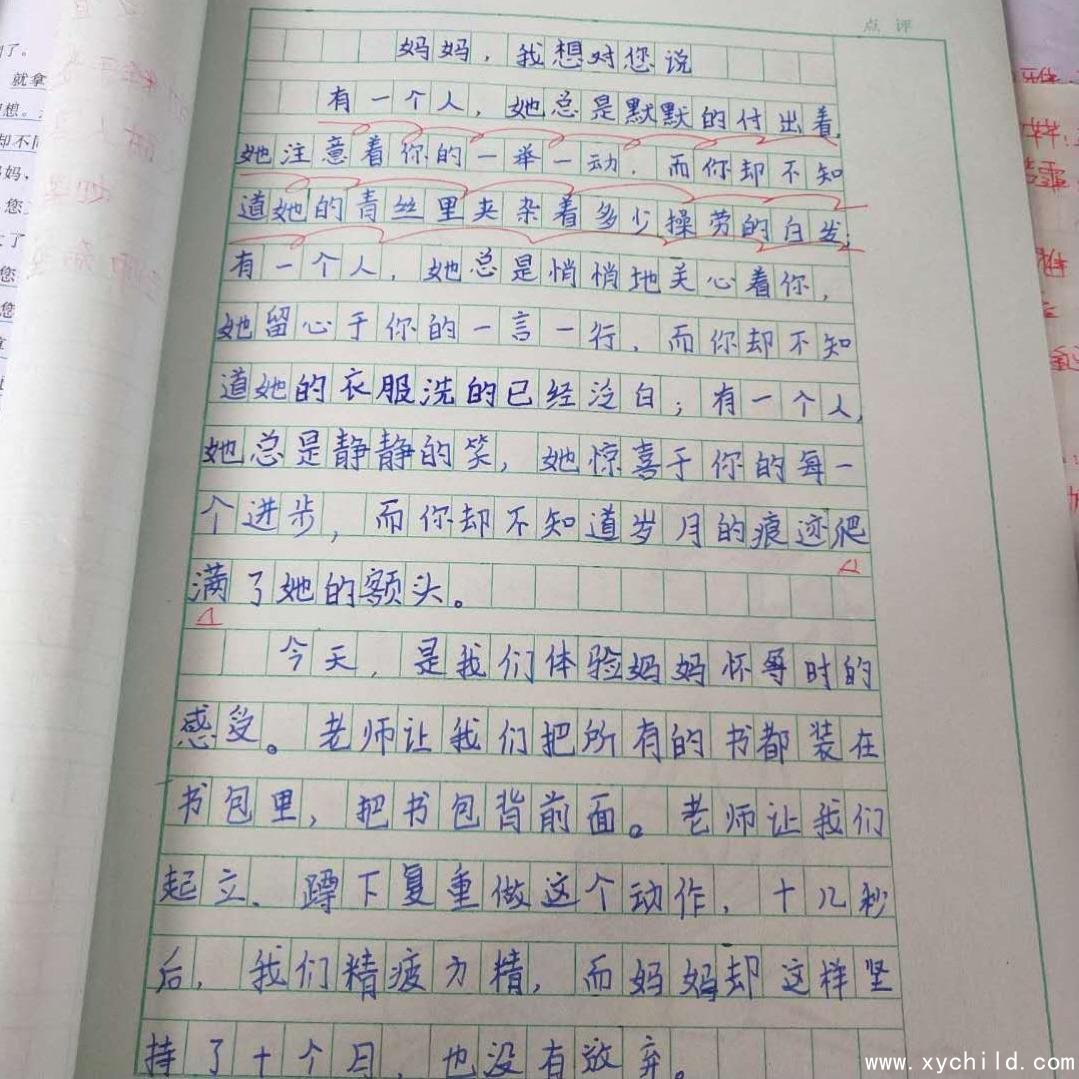 点评
妈妈，我想对您说
有一个人，她总是默默的付出着，
她注意着你的一举一动，而你却不知
道她的青丝里夹杂着多少操劳的白发；
有一个人，她总是悄悄地关心着你，
她留心于你的一言一行，而你却不知
道她的衣服洗的已经泛白；有一个人，
她总是静静的笑，她惊喜于你的每一
个进步，而你却不知道岁月的痕迹爬
满了她的额头。
今天，是我们体验妈妈怀哥时的
感受。老师让我们把所有的书都装在
书包里，把书包背前面。老师让我们
起立、蹲下复重做这个动作，十几秒
后，我们精疲力精，而妈妈却这样坚
持了十个月，也没有放弃。
www.xychild.com